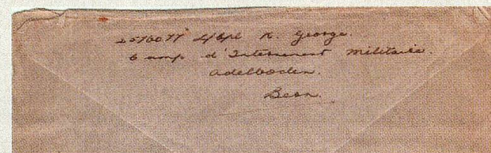 L/Cpl R. George.
Camp d'Internement Militaire.
Adelboden.
Bern.